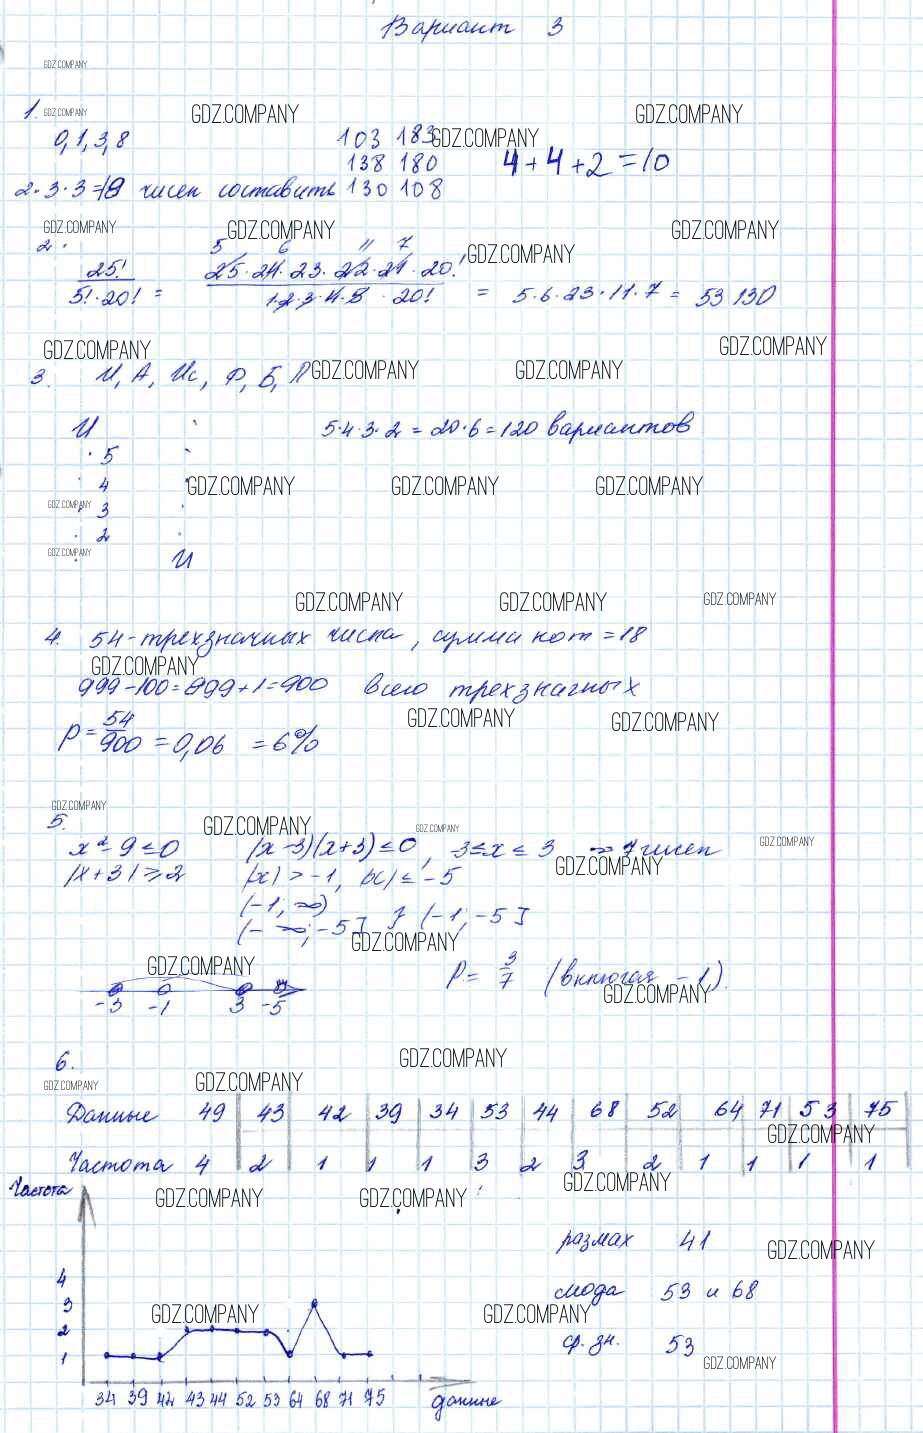 Вариант 3
GDZ.COMPANY
1. GDZ.COMPANY GDZ.COMPANY GDZ.COMPANY
0, 1, 3, 8 103 183 GDZ.COMPANY
138 180 4+4+2=10
2·3·3=18 чисел составить 130 108
GDZ.COMPANY GDZ.COMPANY GDZ.COMPANY
2. 5 6 11 7 GDZ.COMPANY
25! 25·24·23·22·21·20!
5!·20! = 1·2·3·4·5 · 20! = 5·6·23·11·7 = 53 130
GDZ.COMPANY GDZ.COMPANY
3. И, А, Ис, Ф, Б, Л GDZ.COMPANY GDZ.COMPANY
И 5·4·3·2 = 20·6 = 120 вариантов
5
4 GDZ.COMPANY GDZ.COMPANY GDZ.COMPANY
GDZ.COMPANY 3
2
GDZ.COMPANY И
GDZ.COMPANY GDZ.COMPANY GDZ.COMPANY
4. 54 - трехзначных числа, сумма кот = 18
GDZ.COMPANY
999-100=899+1=900 всего трехзначных
GDZ.COMPANY GDZ.COMPANY
P = 54/900 = 0,06 = 6%
GDZ.COMPANY
5. GDZ.COMPANY GDZ.COMPANY GDZ.COMPANY
x²-9≤0 (x-3)(x+3)≤0, -3≤x≤3 => 7 чисел
|x+3|≥2 |x|>-1, |x|≤-5 GDZ.COMPANY
(-1; ∞)
(-∞; -5] } (-1; -5]
GDZ.COMPANY
GDZ.COMPANY P = 3/7 (включая -1).
GDZ.COMPANY
-3 -1 3 -5
6. GDZ.COMPANY
GDZ.COMPANY GDZ.COMPANY
Данные 49 43 42 39 34 53 44 68 52 64 71 53 75
GDZ.COMPANY
Частота 4 2 1 1 1 3 2 3 2 1 1 1 1
Частота GDZ.COMPANY GDZ.COMPANY GDZ.COMPANY
размах 41 GDZ.COMPANY
4
мода 53 и 68
3 GDZ.COMPANY GDZ.COMPANY
2
ср. зн. 53
1 GDZ.COMPANY
34 39 42 43 44 52 53 64 68 71 75 данные